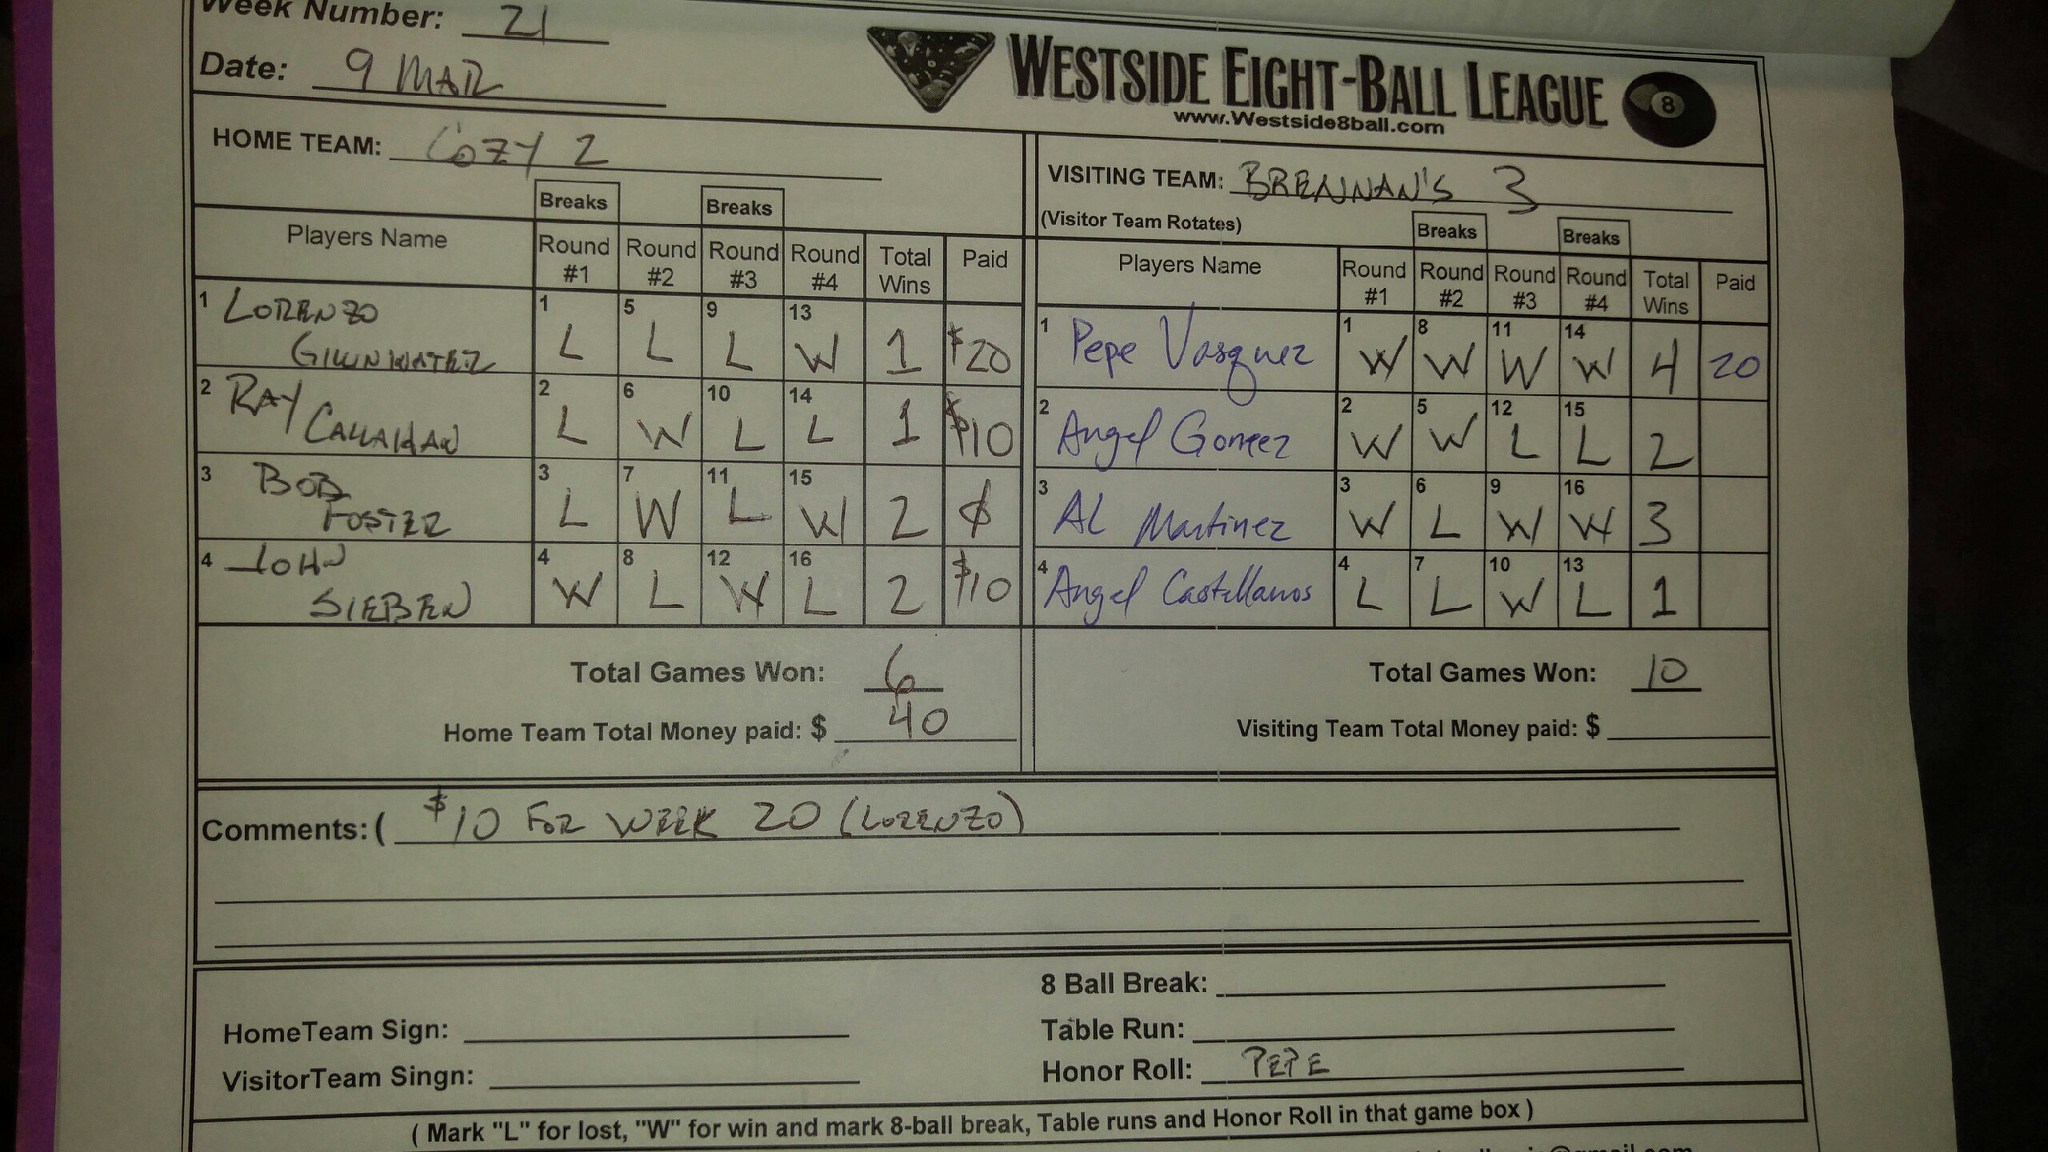 Week Number: 21
Date: 9 MAR
WESTSIDE EIGHT-BALL LEAGUE
8
www.Westside8ball.com
HOME TEAM: COZY 2
VISITING TEAM: BRENNAN'S 3
(Visitor Team Rotates)
Breaks Breaks
Breaks Breaks
Players Name Round #1 Round #2 Round #3 Round #4 Total Wins Paid
Players Name Round #1 Round #2 Round #3 Round #4 Total Wins Paid
1 LORENZO
1 L 5 L 9 L 13 W 1 $20
1 Pepe Vasquez 1 W 8 W 11 W 14 W 4 20
2 RAY CALLAHAN 2 L 6 W 10 L 14 L 1 $10
2 Angel Gomez 2 W 5 W 12 L 15 L 2
3 BOB FOSTER 3 L 7 W 11 L 15 W 2
3 AL Martinez 3 W 6 L 9 W 16 W 3
4 JOHN SIEBEN 4 W 8 L 12 W 16 L 2 $10
4 Angel Castellanos 4 L 7 L 10 W 13 L 1
Total Games Won: 6
Total Games Won: 10
Home Team Total Money paid: $ 40
Visiting Team Total Money paid: $
Comments: ( $10 FOR WEEK 20 (LORENZO)
8 Ball Break:
HomeTeam Sign:
Table Run:
VisitorTeam Singn:
Honor Roll: PEPE
( Mark "L" for lost, "W" for win and mark 8-ball break, Table runs and Honor Roll in that game box )